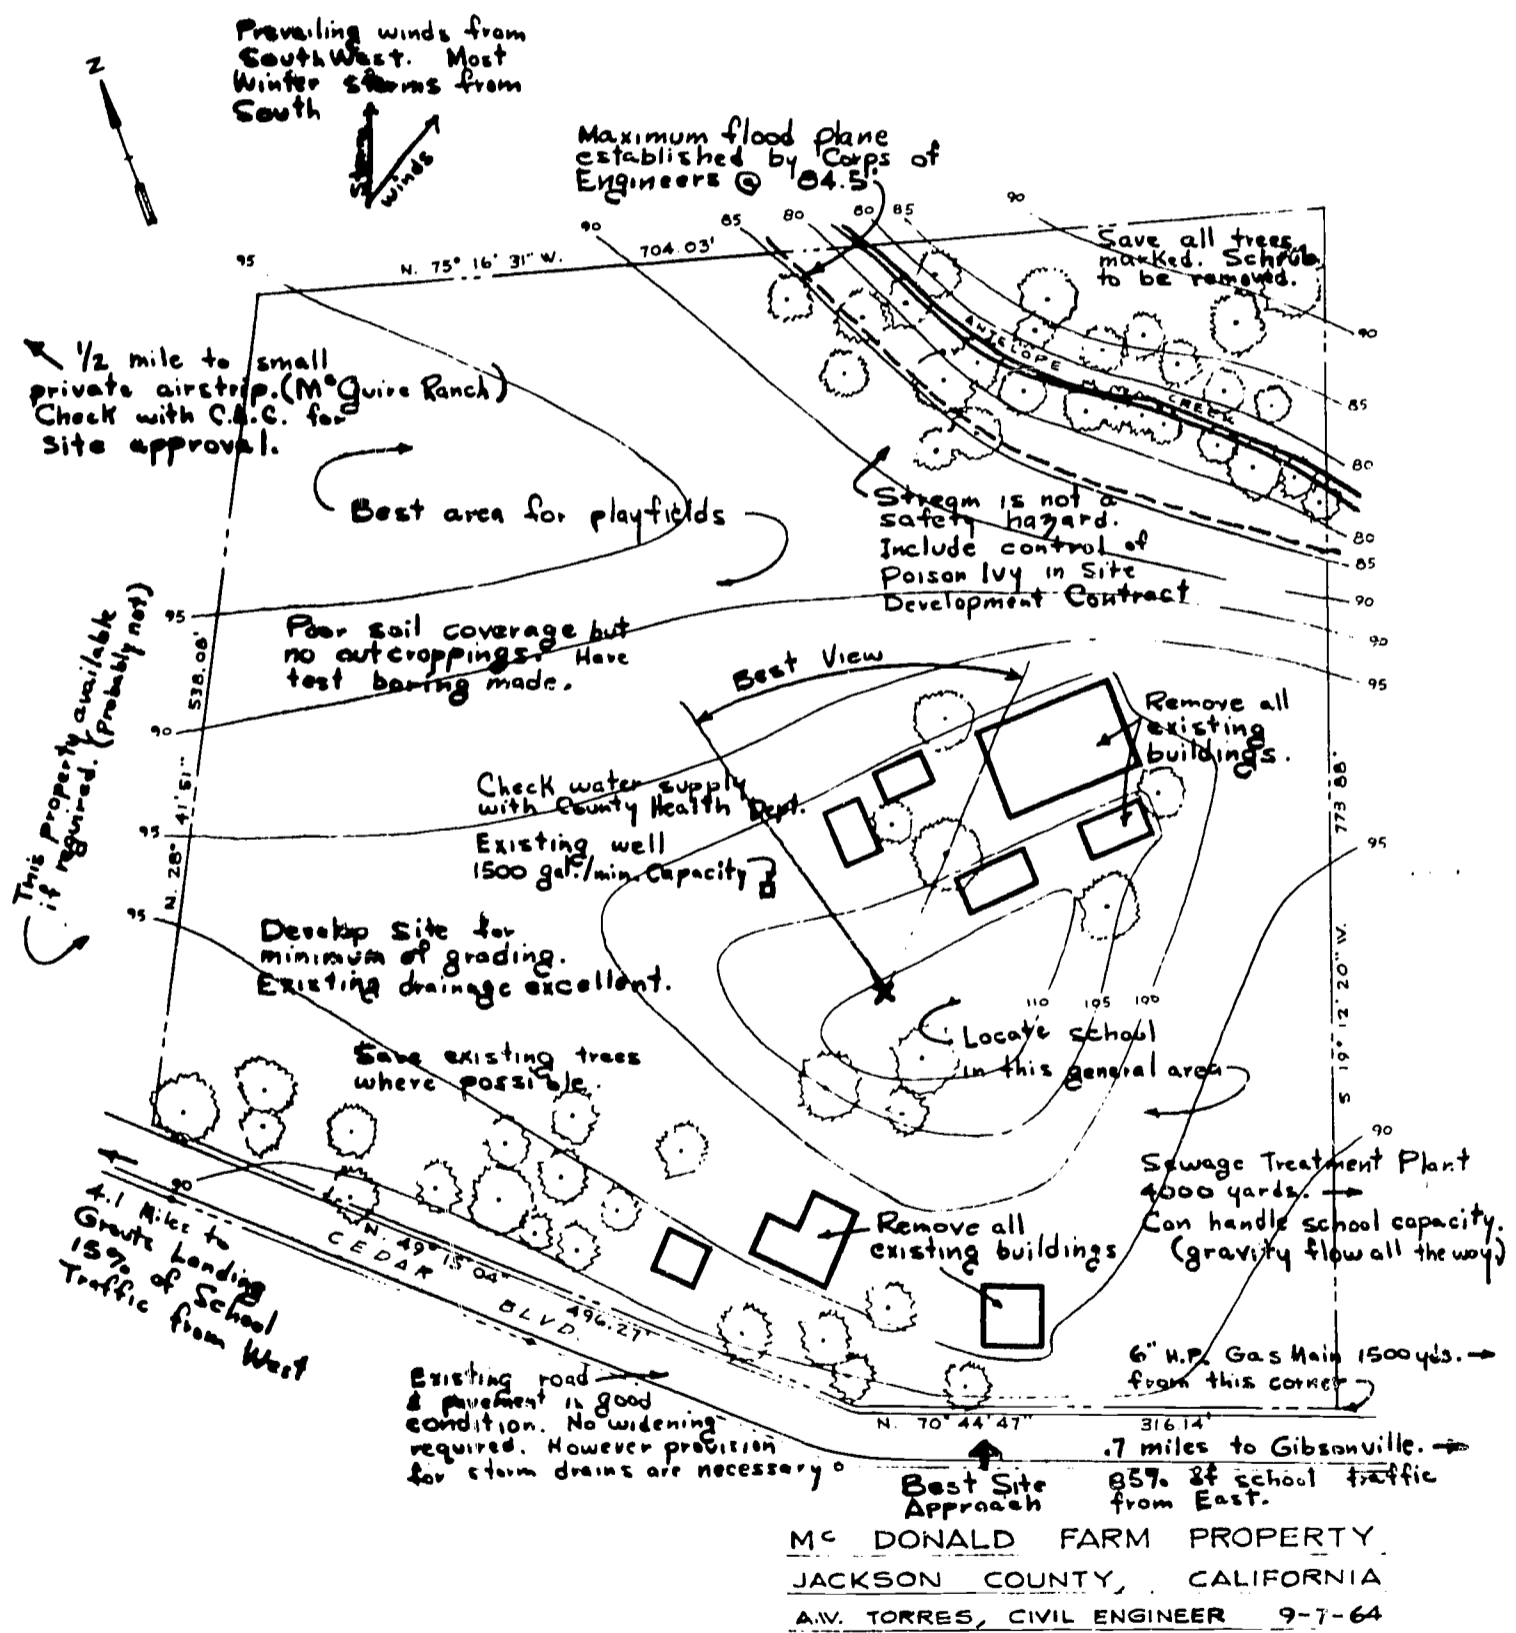 Prevailing winds from
SouthWest. Most
Winter storms from
South
N
Storm
winds
Maximum flood plane
established by Corps of
Engineers @ 84.5'
90
85
80
80
85
90
95
N. 75° 16' 31" W.
704.03'
Save all trees
marked. Schrub
to be removed.
90
ANTELOPE
CREEK
85
80
1/2 mile to small
private airstrip. (McGuire Ranch)
Check with C.A.C. for
site approval.
Best area for playfields
Stream is not a
safety hazard.
Include control of
Poison Ivy in Site
Development Contract
80
85
90
90
95
This property available
if required. (Probably not)
95
538.08'
N. 28° 41' 51"
90
95
95
Poor soil coverage but
no outcroppings. Have
test boring made.
Best View
Remove all
existing
buildings.
Check water supply
with County Health Dept.
Existing well
1500 gal./min. Capacity
773.88'
95
S 19° 12' 20" W.
Develop site for
minimum of grading.
Existing drainage excellent.
110
105
100
Locate school
in this general area
Save existing trees
where possible.
90
Sewage Treatment Plant
4000 yards.
Can handle school capacity.
(gravity flow all the way)
90
4.1 Miles to
Grouts Landing
15% of School
Traffic from West
N. 49° 15' 04"
496.27'
CEDAR
BLVD.
Remove all
existing buildings
6" H.P. Gas Main 1500 yds.
from this corner
Existing road
& pavement in good
condition. No widening
required. However provision
for storm drains are necessary.
N. 70° 44' 47"
316.14'
.7 miles to Gibsonville.
85% of school traffic
from East.
Best Site
Approach
Mc DONALD FARM PROPERTY
JACKSON COUNTY, CALIFORNIA
A.W. TORRES, CIVIL ENGINEER 9-7-64